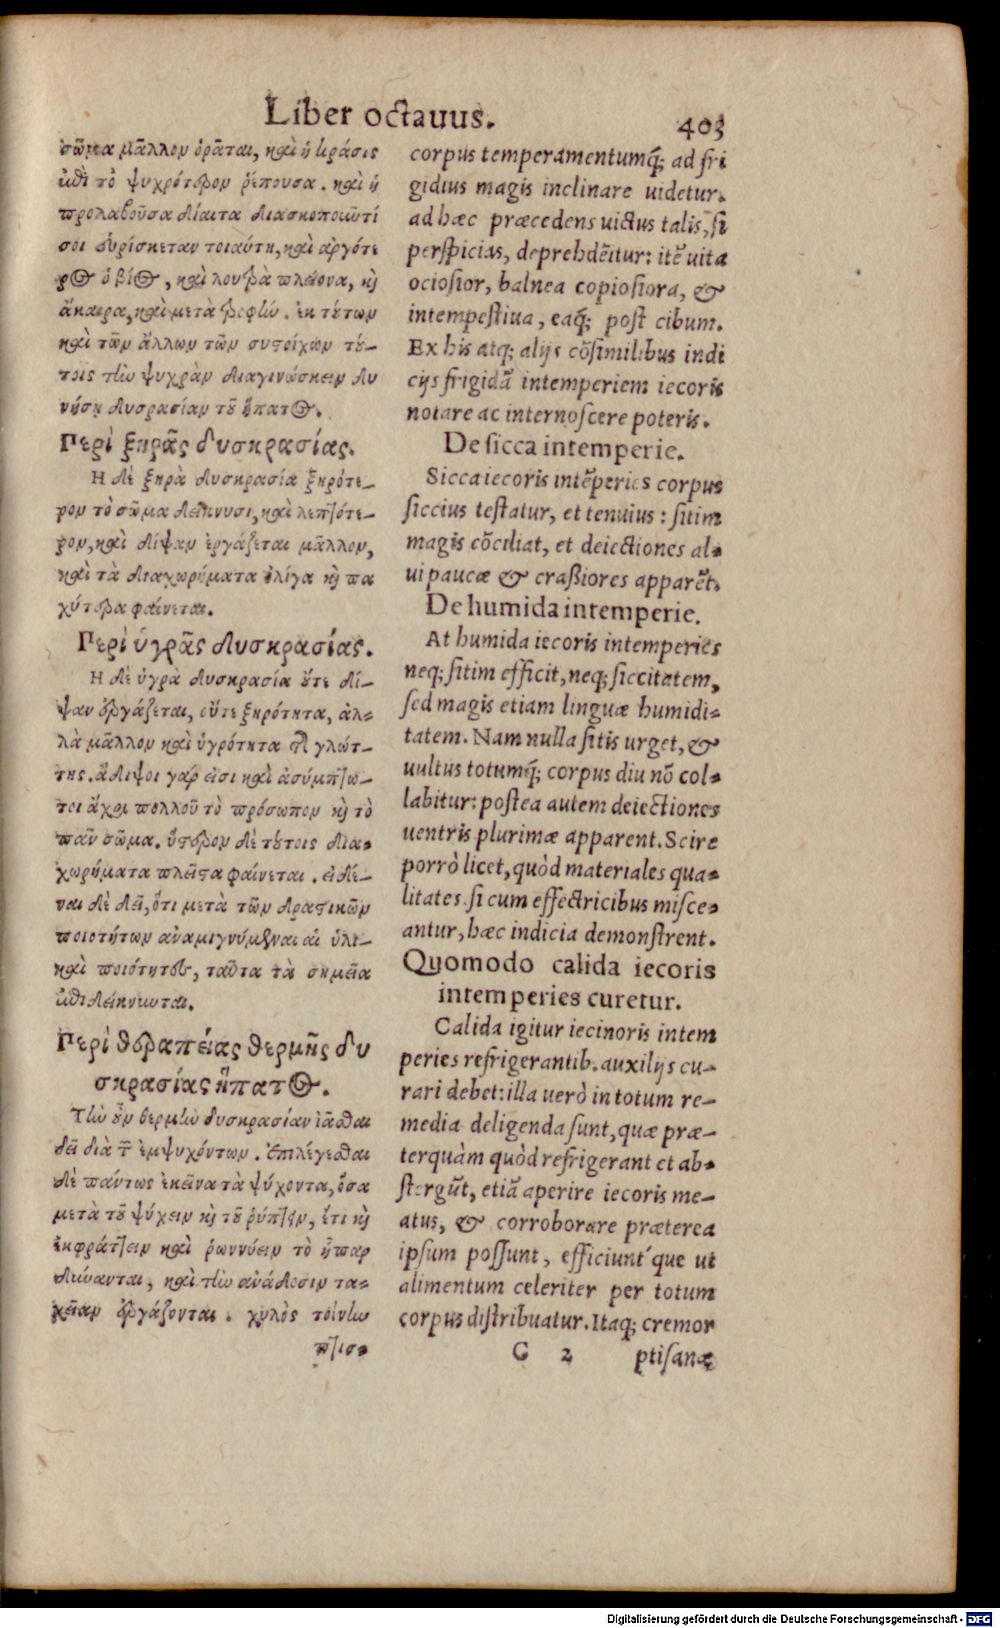 Liber octauus.
403
σῶμα μᾶλλον ὁρᾶται, καὶ ἡ κρᾶσις
ἐπὶ τὸ ψυχρότερον ῥέπουσα. καὶ ἡ
προλαβοῦσα δίαιτα διασκοποιῶτί
σοι εὑρίσκεται τοιαύτη, καὶ ἀργότε
ρος ὁ βίος, καὶ λουτρὰ πλείονα, καὶ
ἄκαιρα, καὶ μετὰ τροφὴν. ἐκ τούτων
καὶ τῶν ἄλλων τῶν συστοίχων τού-
τοις τὴν ψυχρὰν διαγινώσκειν δυ
νήσῃ δυσκρασίαν τοῦ ἥπατος.
Περὶ ξηρᾶς δυσκρασίας.
Η δὲ ξηρὰ δυσκρασία ξηρότε-
ρον τὸ σῶμα δείκνυσι, καὶ λεπτότε-
ρον, καὶ δίψαν ἐργάζεται μᾶλλον,
καὶ τὰ διαχωρήματα ὀλίγα καὶ πα
χύτερα φαίνεται.
Περὶ ὑγρᾶς δυσκρασίας.
Η δὲ ὑγρὰ δυσκρασία οὔτε δί-
ψαν ἐργάζεται, οὔτε ξηρότητα, ἀλ-
λὰ μᾶλλον καὶ ὑγρότητα τῆς γλώτ-
της. ἄδιψοι γάρ εἰσι καὶ ἀσύμπτω-
τοι ἄχρι πολλοῦ τὸ πρόσωπον καὶ τὸ
πᾶν σῶμα. ὕστερον δὲ τούτοις δια-
χωρήματα πλεῖστα φαίνεται. εἰδέ-
ναι δὲ δεῖ, ὅτι μετὰ τῶν δραστικῶν
ποιοτήτων ἀναμιγνύμεναι αἱ ὑλι-
καὶ ποιότητες, ταῦτα τὰ σημεῖα
ἐπιδείκνυνται.
Περὶ θεραπείας θερμῆς δυ
σκρασίας ἥπατος.
Τὴν οὖν θερμὴν δυσκρασίαν ἰᾶσθαι
δεῖ διὰ τῶν ἐμψυχόντων. ἐπιλέγεσθαι
δὲ πάντως ἐκεῖνα τὰ ψύχοντα, ὅσα
μετὰ τοῦ ψύχειν καὶ τοῦ ῥύπτειν, ἔτι καὶ
ἐκφράττειν καὶ ῥωννύειν τὸ ἧπαρ
δύνανται, καὶ τὴν ἀνάδοσιν τα-
χεῖαν ἐργάζονται. χυλὸς τοίνυν
πτισ-
corpus temperamentumq́; ad fri
gidius magis inclinare uidetur.
ad hæc præcedens uictus talis, si
perspicias, deprehdẽitur: itẽ uita
ociosior, balnea copiosiora, &
intempestiua, eaq́; post cibum.
Ex his atq; alijs cõsimilibus indi
cijs frigidã intemperiem iecoris
notare ac internoscere poteris.
De sicca intemperie.
Sicca iecoris intẽperies corpus
siccius testatur, et tenuius: sitim
magis cõciliat, et deiectiones al-
ui paucæ & crassiores apparẽt.
De humida intemperie.
At humida iecoris intemperies
neq; sitim efficit, neq; siccitatem,
sed magis etiam linguæ humidi-
tatem. Nam nulla sitis urget, &
uultus totumq́; corpus diu nõ col-
labitur: postea autem deiectiones
uentris plurimæ apparent. Scire
porrò licet, quòd materiales qua-
litates si cum effectricibus misce-
antur, hæc indicia demonstrent.
Quomodo calida iecoris
intemperies curetur.
Calida igitur iecinoris intem
peries refrigerantib. auxilijs cu-
rari debet: illa uerò in totum re-
media deligenda sunt, quæ præ-
terquàm quòd refrigerant et ab-
stergũt, etiã aperire iecoris me-
atus, & corroborare præterea
ipsum possunt, efficiunt́que ut
alimentum celeriter per totum
corpus distribuatur. Itaq; cremor
G 2 ptisanæ
Digitalisierung gefördert durch die Deutsche Forschungsgemeinschaft - DFG